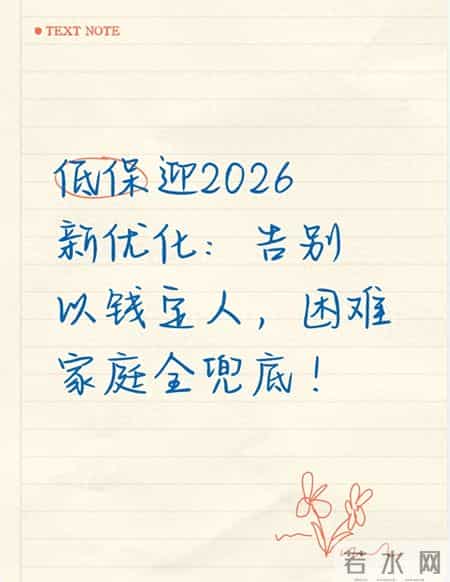 TEXT NOTE
低保迎2026
新优化：告别
以钱定人，困难
家庭全兜底！
若水网